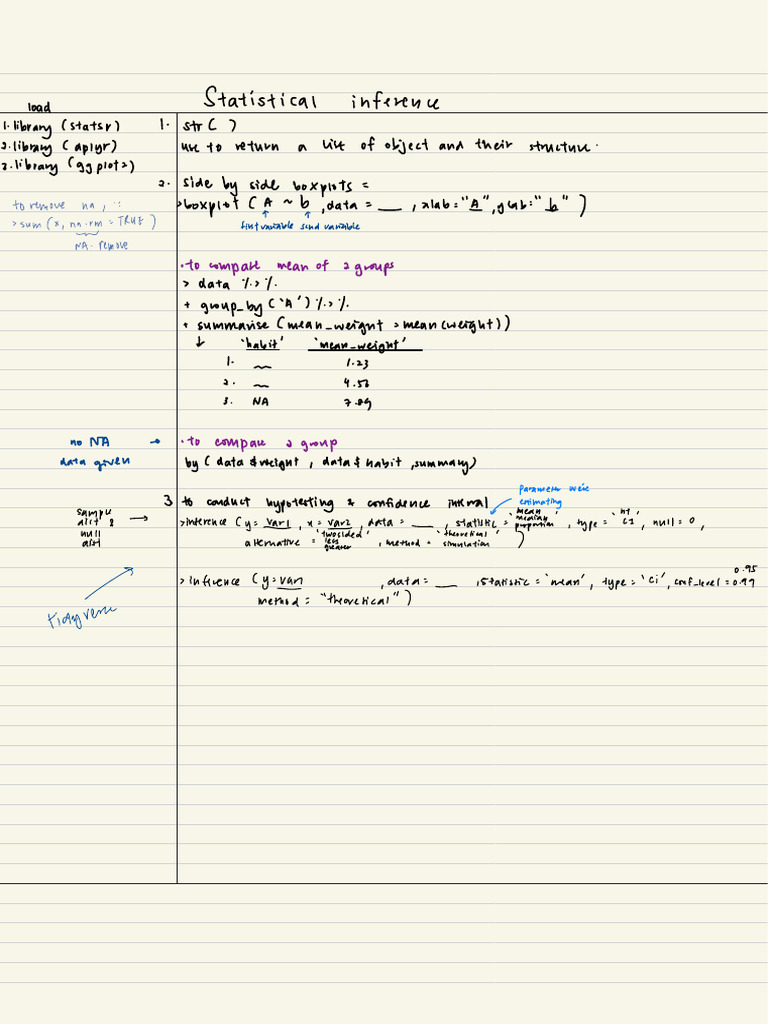 Statistical inference
load
1. library (statsr)
2. library (dplyr)
3. library (ggplot2)
to remove na, :
> sum (x, na.rm = TRUE)
NA. remove
1. str ( )
use to return a list of object and their structure.
2. side by side boxplots =
> boxplot ( A ~ b , data = __ , xlab = "A", ylab = "b" )
first variable scnd variable
• to compare mean of 2 groups
> data %>%
+ group_by ('A') %>%
+ summarise (mean_weight = mean(weight))
↓ 'habit' 'mean_weight'
1. 1.23
2. 4.56
3. NA 7.89
no NA → • to compare 2 group
data given by ( data$weight , data$habit , summary)
parameter we're
estimating
3 to conduct hypotesting & confidence interval
sample
null
→
> inference (y = var1 , x = var2 , data = __ , statistic = 'mean' median proportion , type = 'ht' ci , null = 0 ,
alternative = 'twosided' less greater , method = 'theoretical' simulation )
tidyverse
0.95
> inference (y = var , data = __ , statistic = 'mean' , type = 'ci' , conf_level = 0.97
method = "theoretical" )